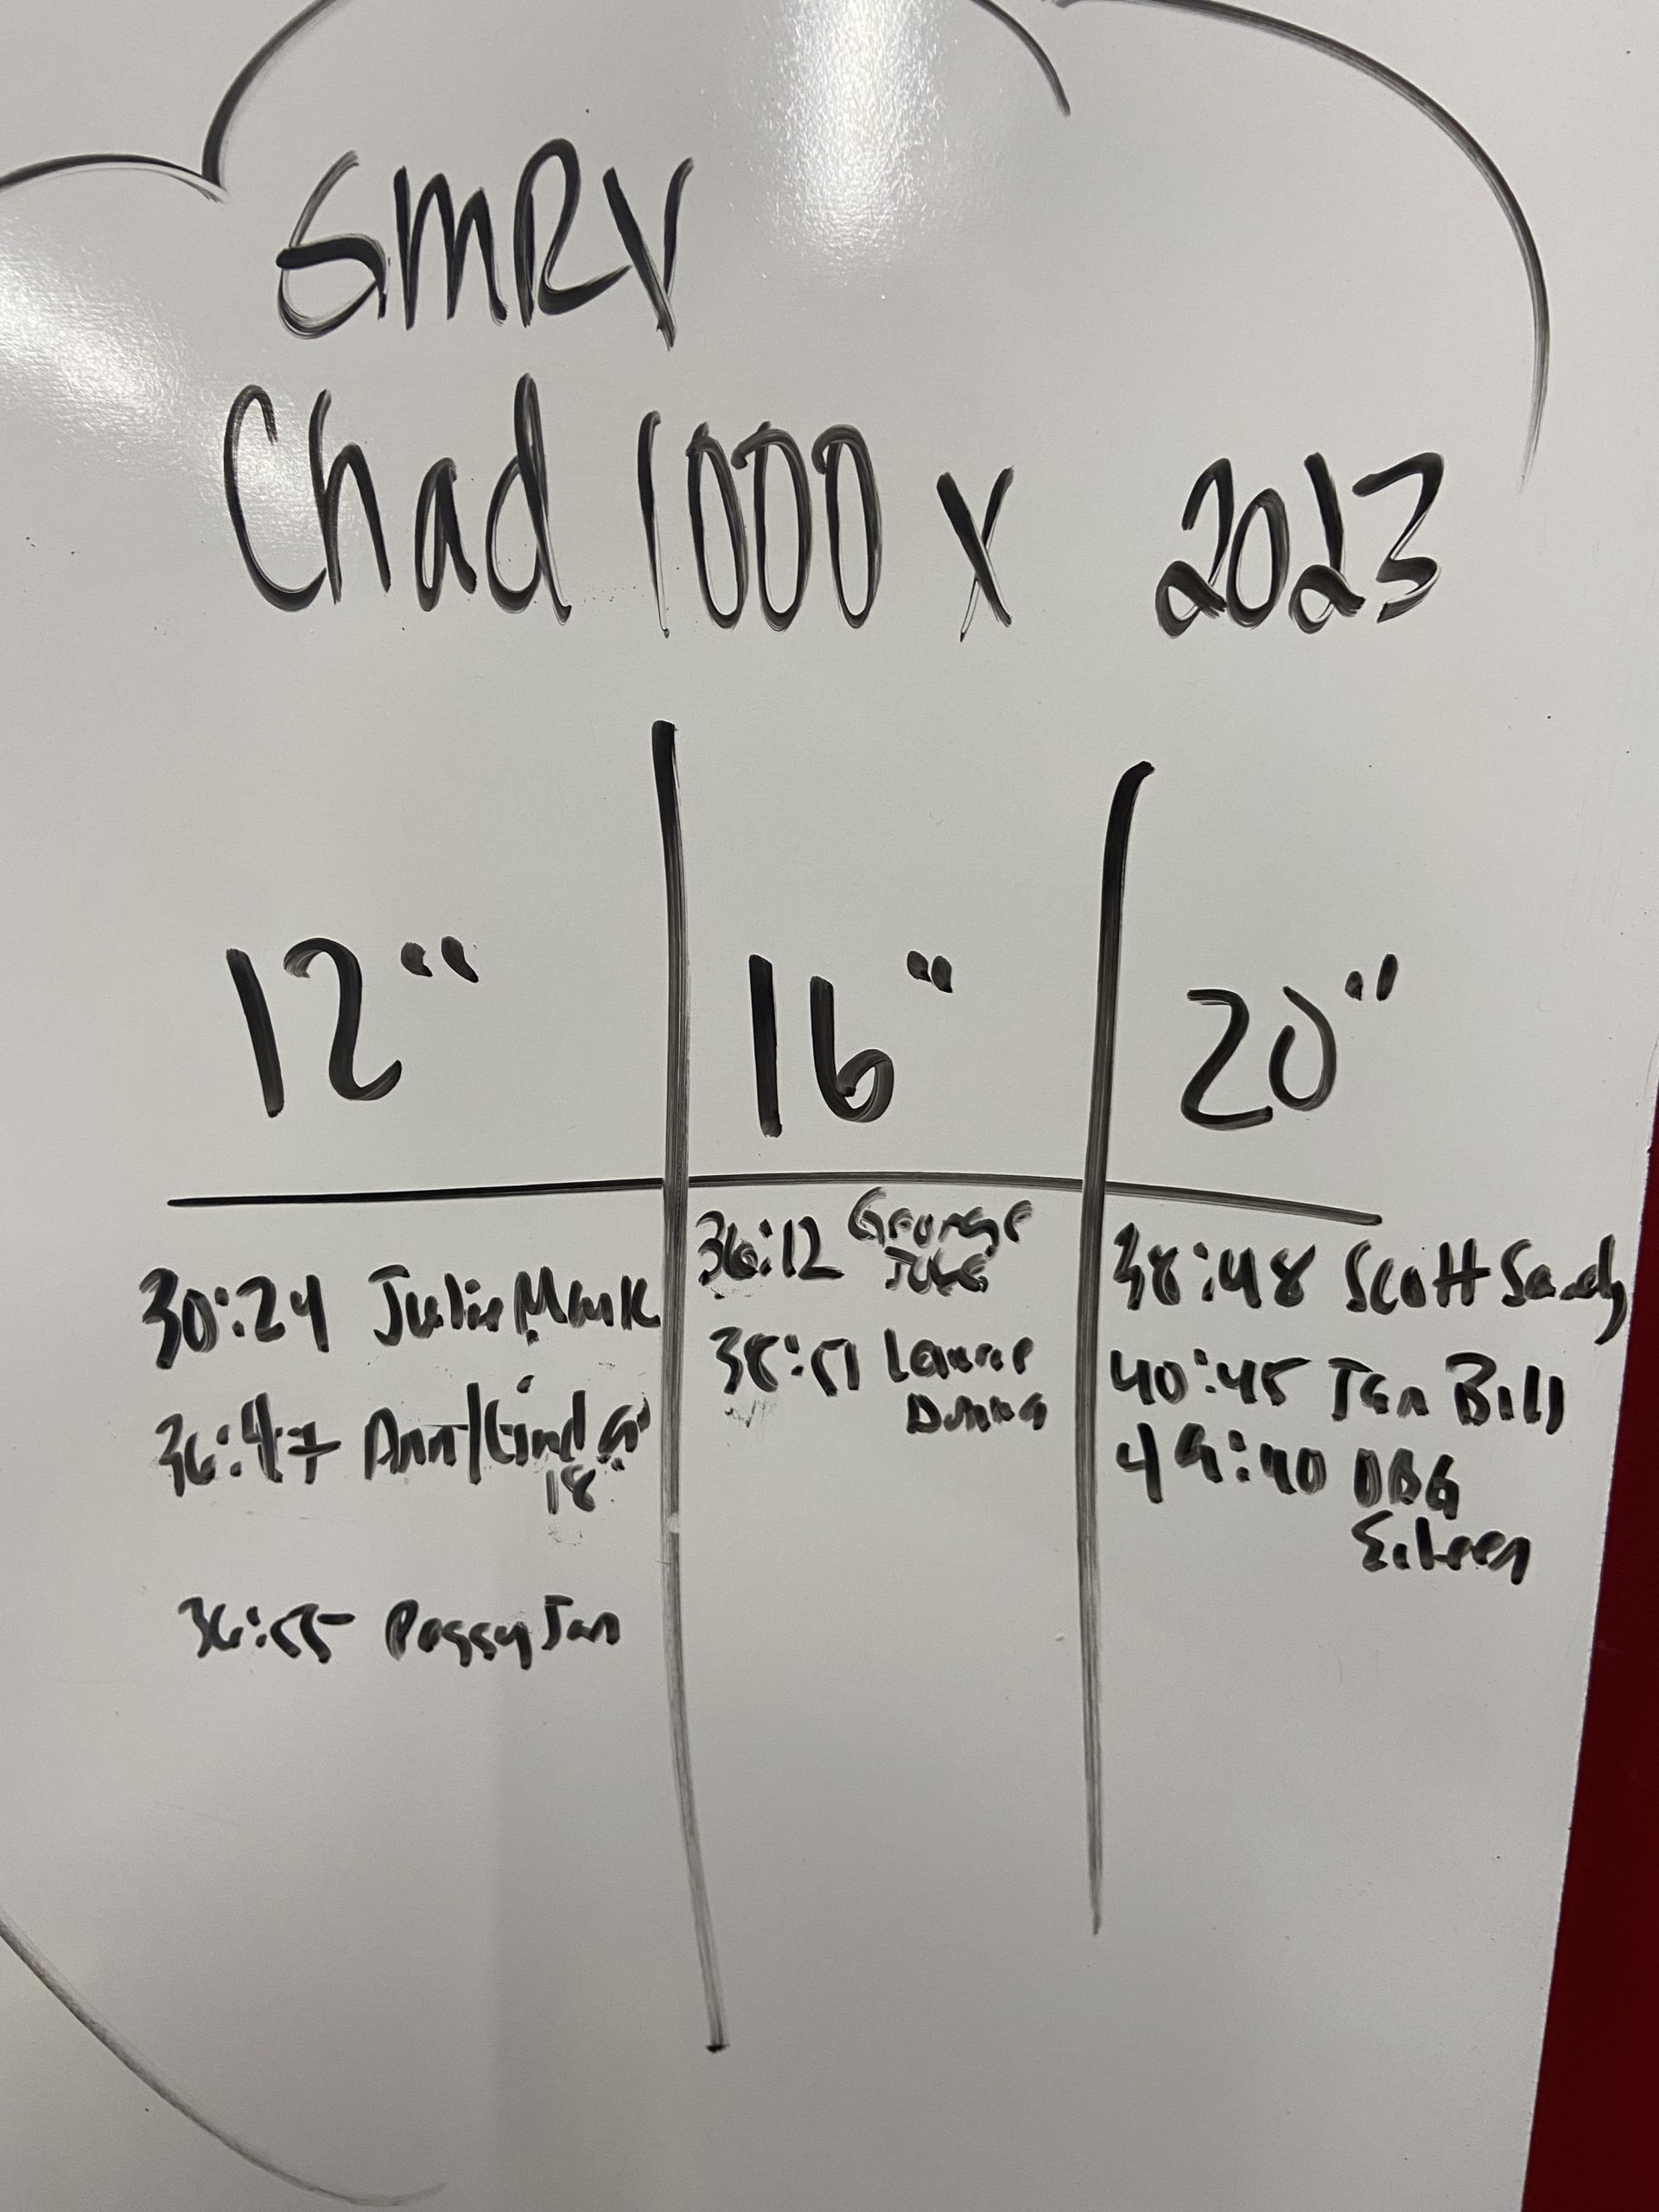 GMRV
Chad 1000 X 2023
12" 16" 20"
30:24 Julie Mark
36:47 Ann/Linda 9"
18"
36:55 Peggy Jan
36:12 George
38:51 Laurie
Donna
38:48 Scott Sandy
40:45 Jan Bill
49:40 OBG
Eileen